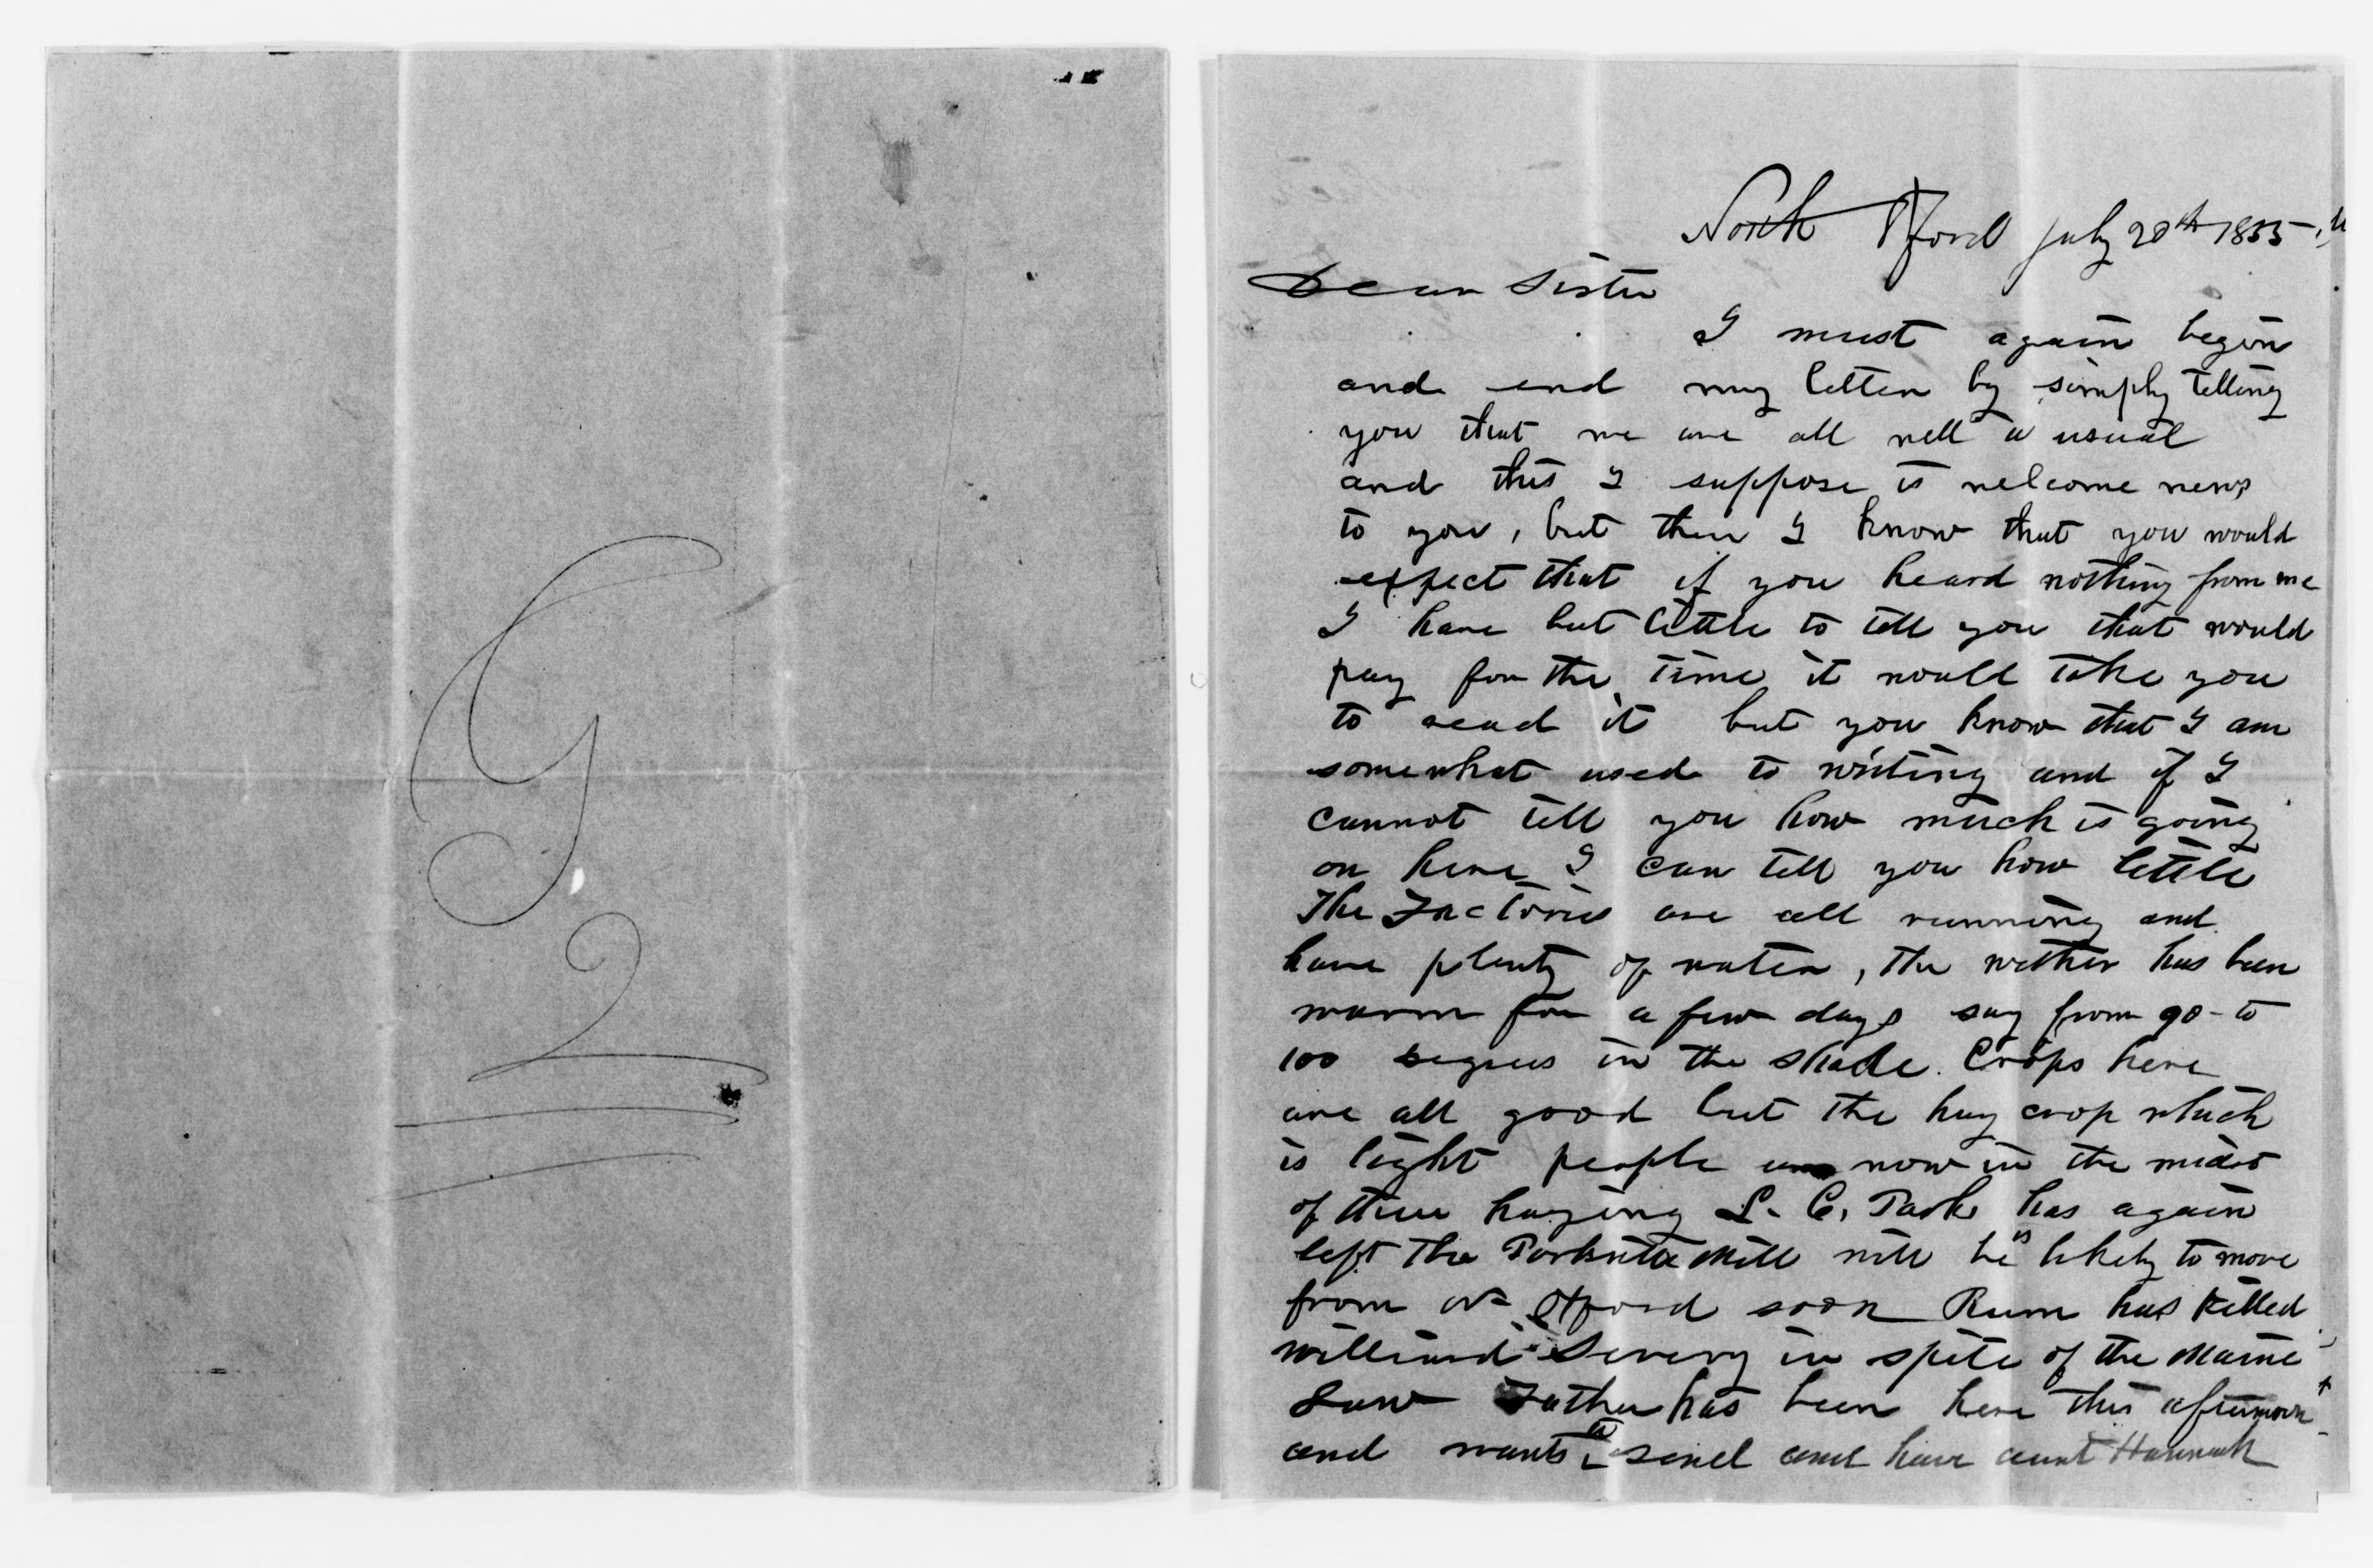 G
2
North Oxford July 20th 1855
Dear Sister
I must again begin
and end my letter by simply telling
you that we are all well as usual
and this I suppose is welcome news
to you, but then I know that you would
expect that if you heard nothing from me
I have but little to tell you that would
pay for the time it would take you
to read it but you know that I am
somewhat used to writing and if I
cannot tell you how much is going
on here I can tell you how little
The Factories are all running and
have plenty of water, the wether has been
warm for a few days say from 90 - to
100 degrees in the shade. Crops here
are all good but the hay crop which
is light people are now in the midst
of their haying L. C. Park has again
left the mill will be is likely to move
from N Oxford soon Rum has killed
Williard Severy in spite of the Maine
Law Father has been here this afternoon
and wants to send and have aunt Hannah